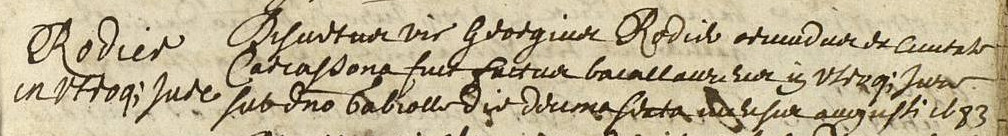 Rodier
in utroq; jure
Discretus vir Georgius Rodier oriundus ex civitate
Carcassona fuit factus bacallaureus in utroq; jure
sub dno Cabrolle die decima sexta mensis augusti 1683